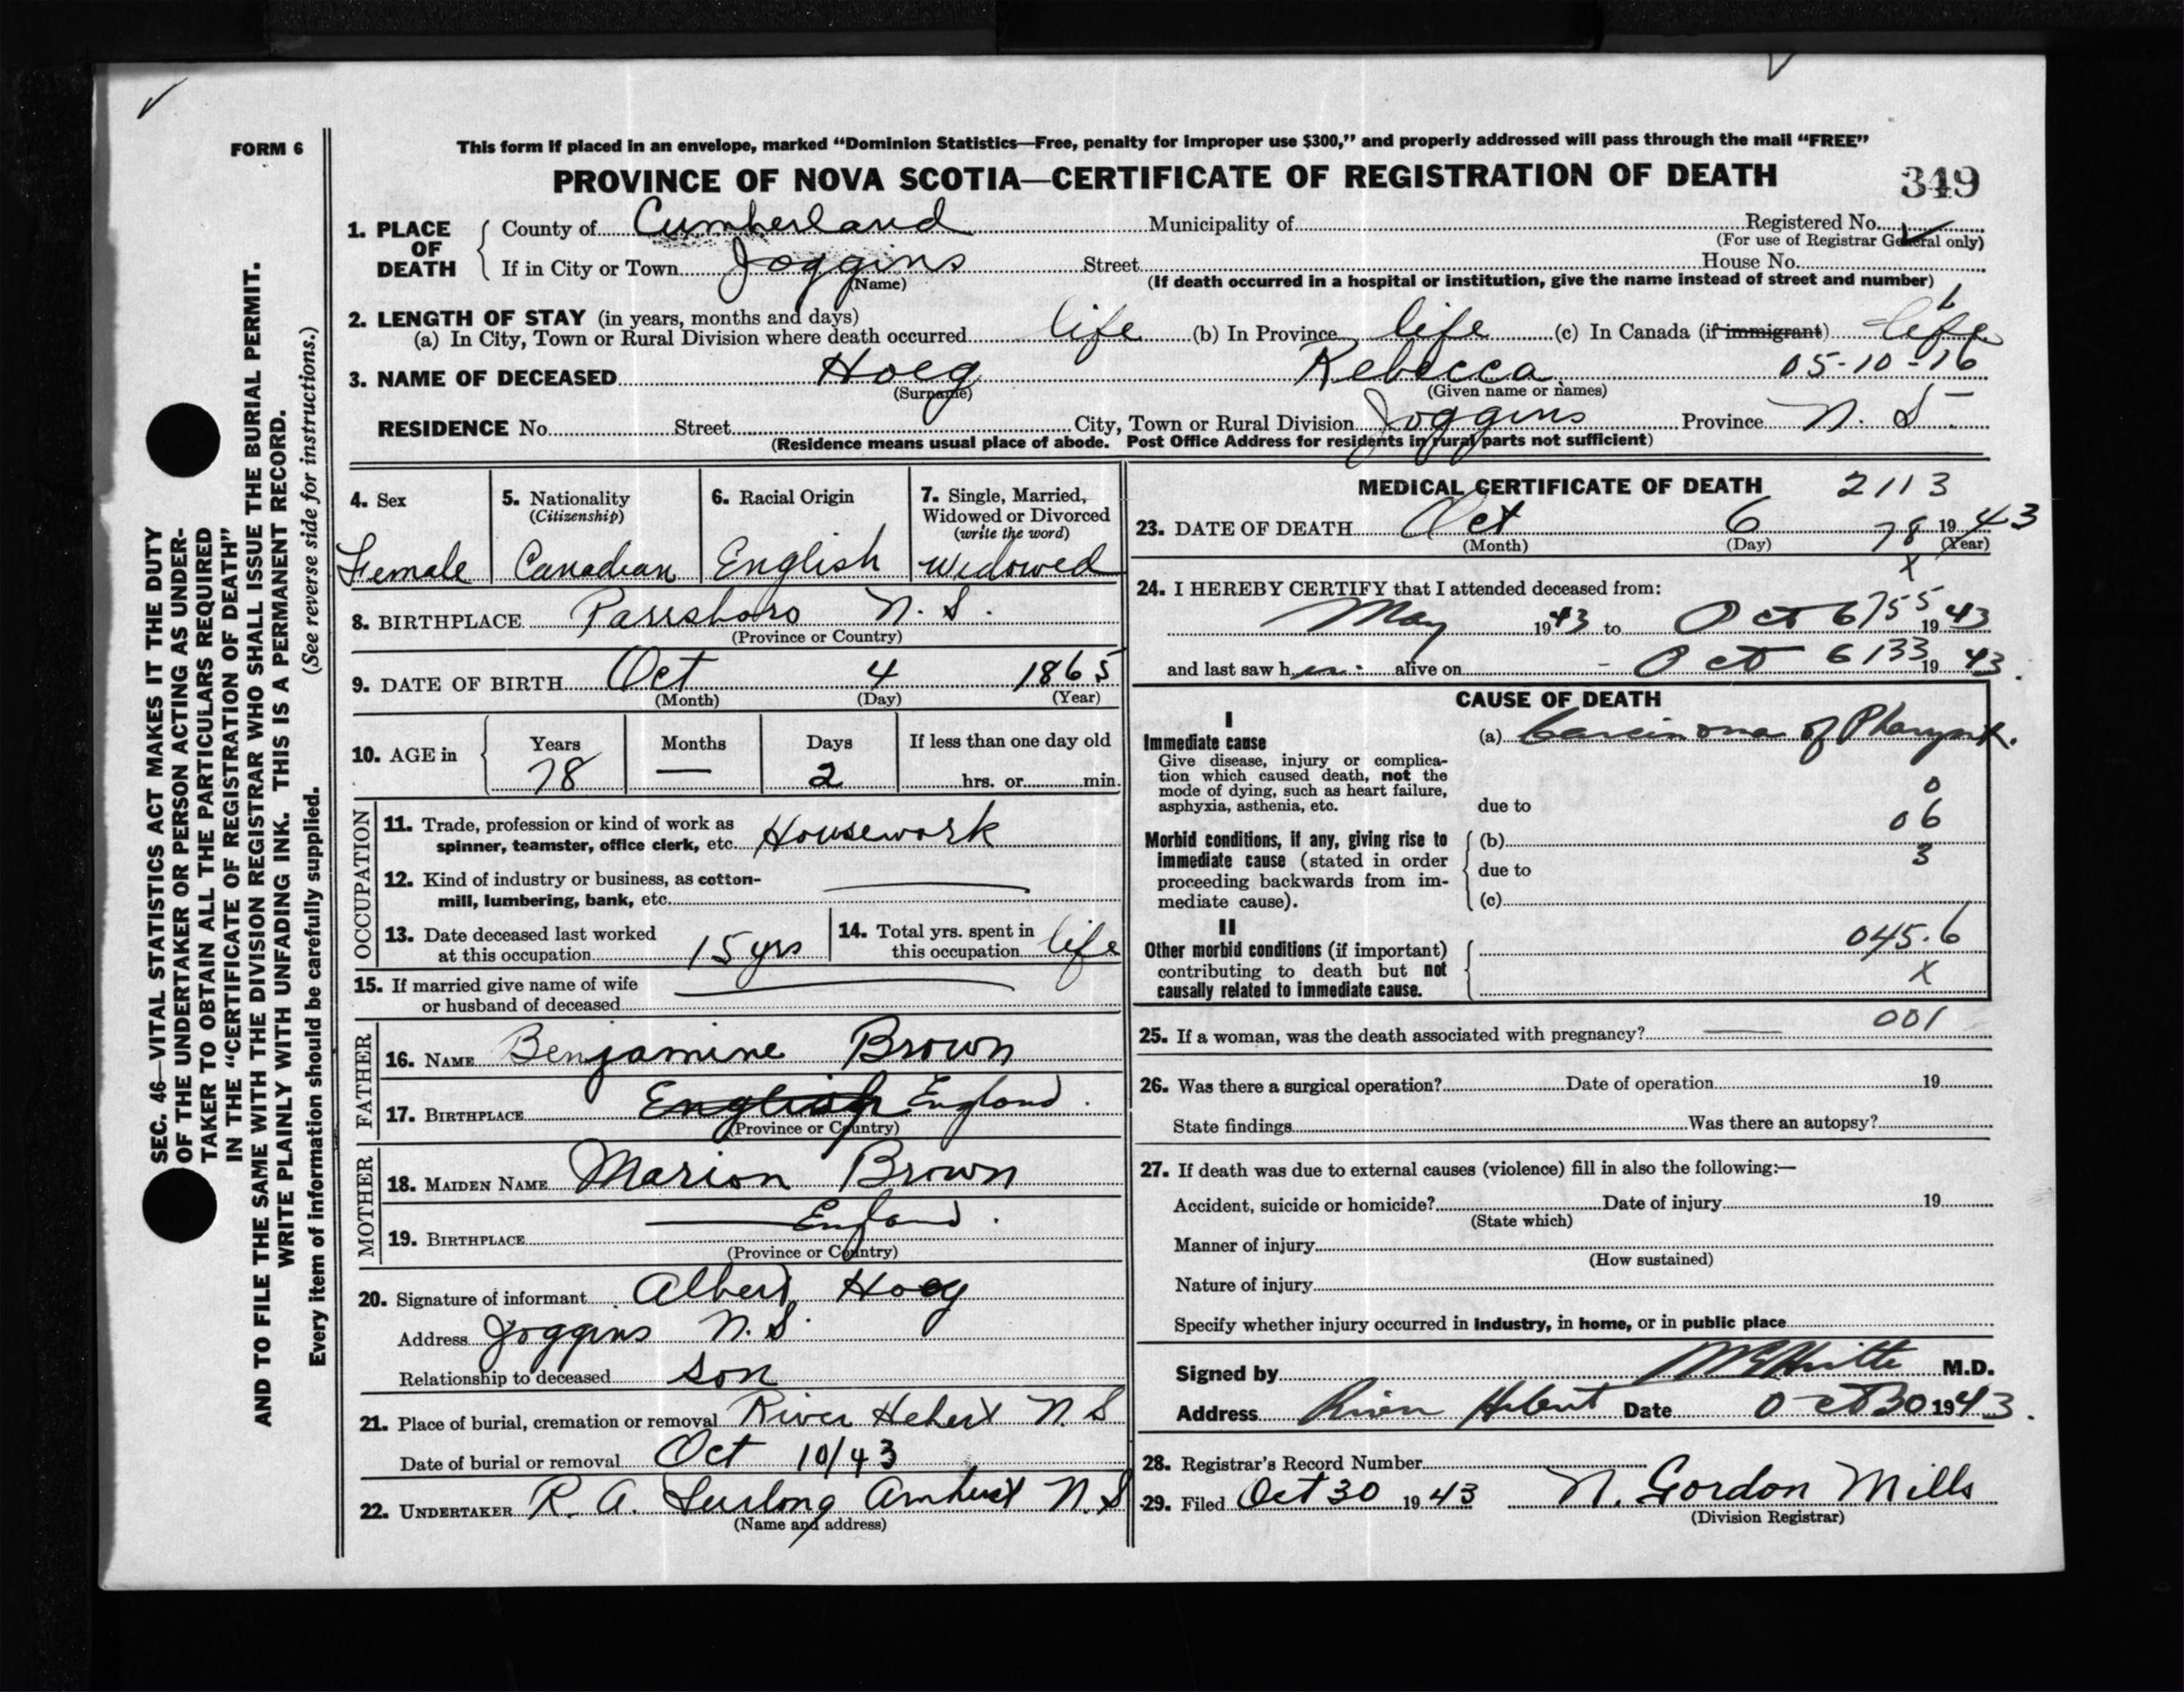 FORM 6
This form if placed in an envelope, marked “Dominion Statistics—Free, penalty for improper use $300,” and properly addressed will pass through the mail “FREE”
PROVINCE OF NOVA SCOTIA—CERTIFICATE OF REGISTRATION OF DEATH 349
1. PLACE OF DEATH County of Cumberland Municipality of Registered No.
(For use of Registrar General only)
If in City or Town Joggins Street House No.
(Name) (If death occurred in a hospital or institution, give the name instead of street and number)
2. LENGTH OF STAY (in years, months and days)
(a) In City, Town or Rural Division where death occurred life (b) In Province life (c) In Canada (if immigrant) life
3. NAME OF DECEASED Hoeg Rebecca 05-10-16
(Surname) (Given name or names)
RESIDENCE No. Street City, Town or Rural Division Joggins Province N. S.
(Residence means usual place of abode. Post Office Address for residents in rural parts not sufficient)
SEC. 46—VITAL STATISTICS ACT MAKES IT THE DUTY
OF THE UNDERTAKER OR PERSON ACTING AS UNDER-
TAKER TO OBTAIN ALL THE PARTICULARS REQUIRED
IN THE “CERTIFICATE OF REGISTRATION OF DEATH”
AND TO FILE THE SAME WITH THE DIVISION REGISTRAR WHO SHALL ISSUE THE BURIAL PERMIT.
WRITE PLAINLY WITH UNFADING INK. THIS IS A PERMANENT RECORD.
Every item of information should be carefully supplied. (See reverse side for instructions.)
4. Sex
Female
5. Nationality
(Citizenship)
Canadian
6. Racial Origin
English
7. Single, Married,
Widowed or Divorced
(write the word)
Widowed
8. BIRTHPLACE Parrsboro N. S.
(Province or Country)
9. DATE OF BIRTH Oct 4 1865
(Month) (Day) (Year)
10. AGE in Years Months Days If less than one day old
78 — 2 hrs. or min.
OCCUPATION
11. Trade, profession or kind of work as
spinner, teamster, office clerk, etc. Housework
12. Kind of industry or business, as cotton-
mill, lumbering, bank, etc.
13. Date deceased last worked
at this occupation 15 yrs
14. Total yrs. spent in
this occupation life
15. If married give name of wife
or husband of deceased
FATHER
16. NAME Benjamine Brown
17. BIRTHPLACE English England.
(Province or Country)
MOTHER
18. MAIDEN NAME Marion Brown
19. BIRTHPLACE England.
(Province or Country)
20. Signature of informant Albert Hoeg
Address Joggins N. S.
Relationship to deceased son
21. Place of burial, cremation or removal River Hebert N. S
Date of burial or removal Oct 10/43
22. UNDERTAKER R. A. Furlong Amherst N. S
(Name and address)
MEDICAL CERTIFICATE OF DEATH 2113
23. DATE OF DEATH Oct 6 78 1943
(Month) (Day) (Year)
x
24. I HEREBY CERTIFY that I attended deceased from:
May 1943 to Oct 6 755 1943
and last saw her alive on Oct 6 133 1943.
CAUSE OF DEATH
I
Immediate cause
Give disease, injury or complica-
tion which caused death, not the
mode of dying, such as heart failure,
asphyxia, asthenia, etc.
(a) Carcinoma of Pharynx.
0
due to
06
Morbid conditions, if any, giving rise to
immediate cause (stated in order
proceeding backwards from im-
mediate cause).
(b)
3
due to
(c)
II
Other morbid conditions (if important)
contributing to death but not
causally related to immediate cause.
045.6
x
25. If a woman, was the death associated with pregnancy? — 001
26. Was there a surgical operation? Date of operation 19
State findings Was there an autopsy?
27. If death was due to external causes (violence) fill in also the following:—
Accident, suicide or homicide? Date of injury 19
(State which)
Manner of injury
(How sustained)
Nature of injury
Specify whether injury occurred in industry, in home, or in public place
Signed by M.D.
Address River Hebert Date Oct 30 1943.
28. Registrar's Record Number
29. Filed Oct 30 1943 N. Gordon Mills
(Division Registrar)